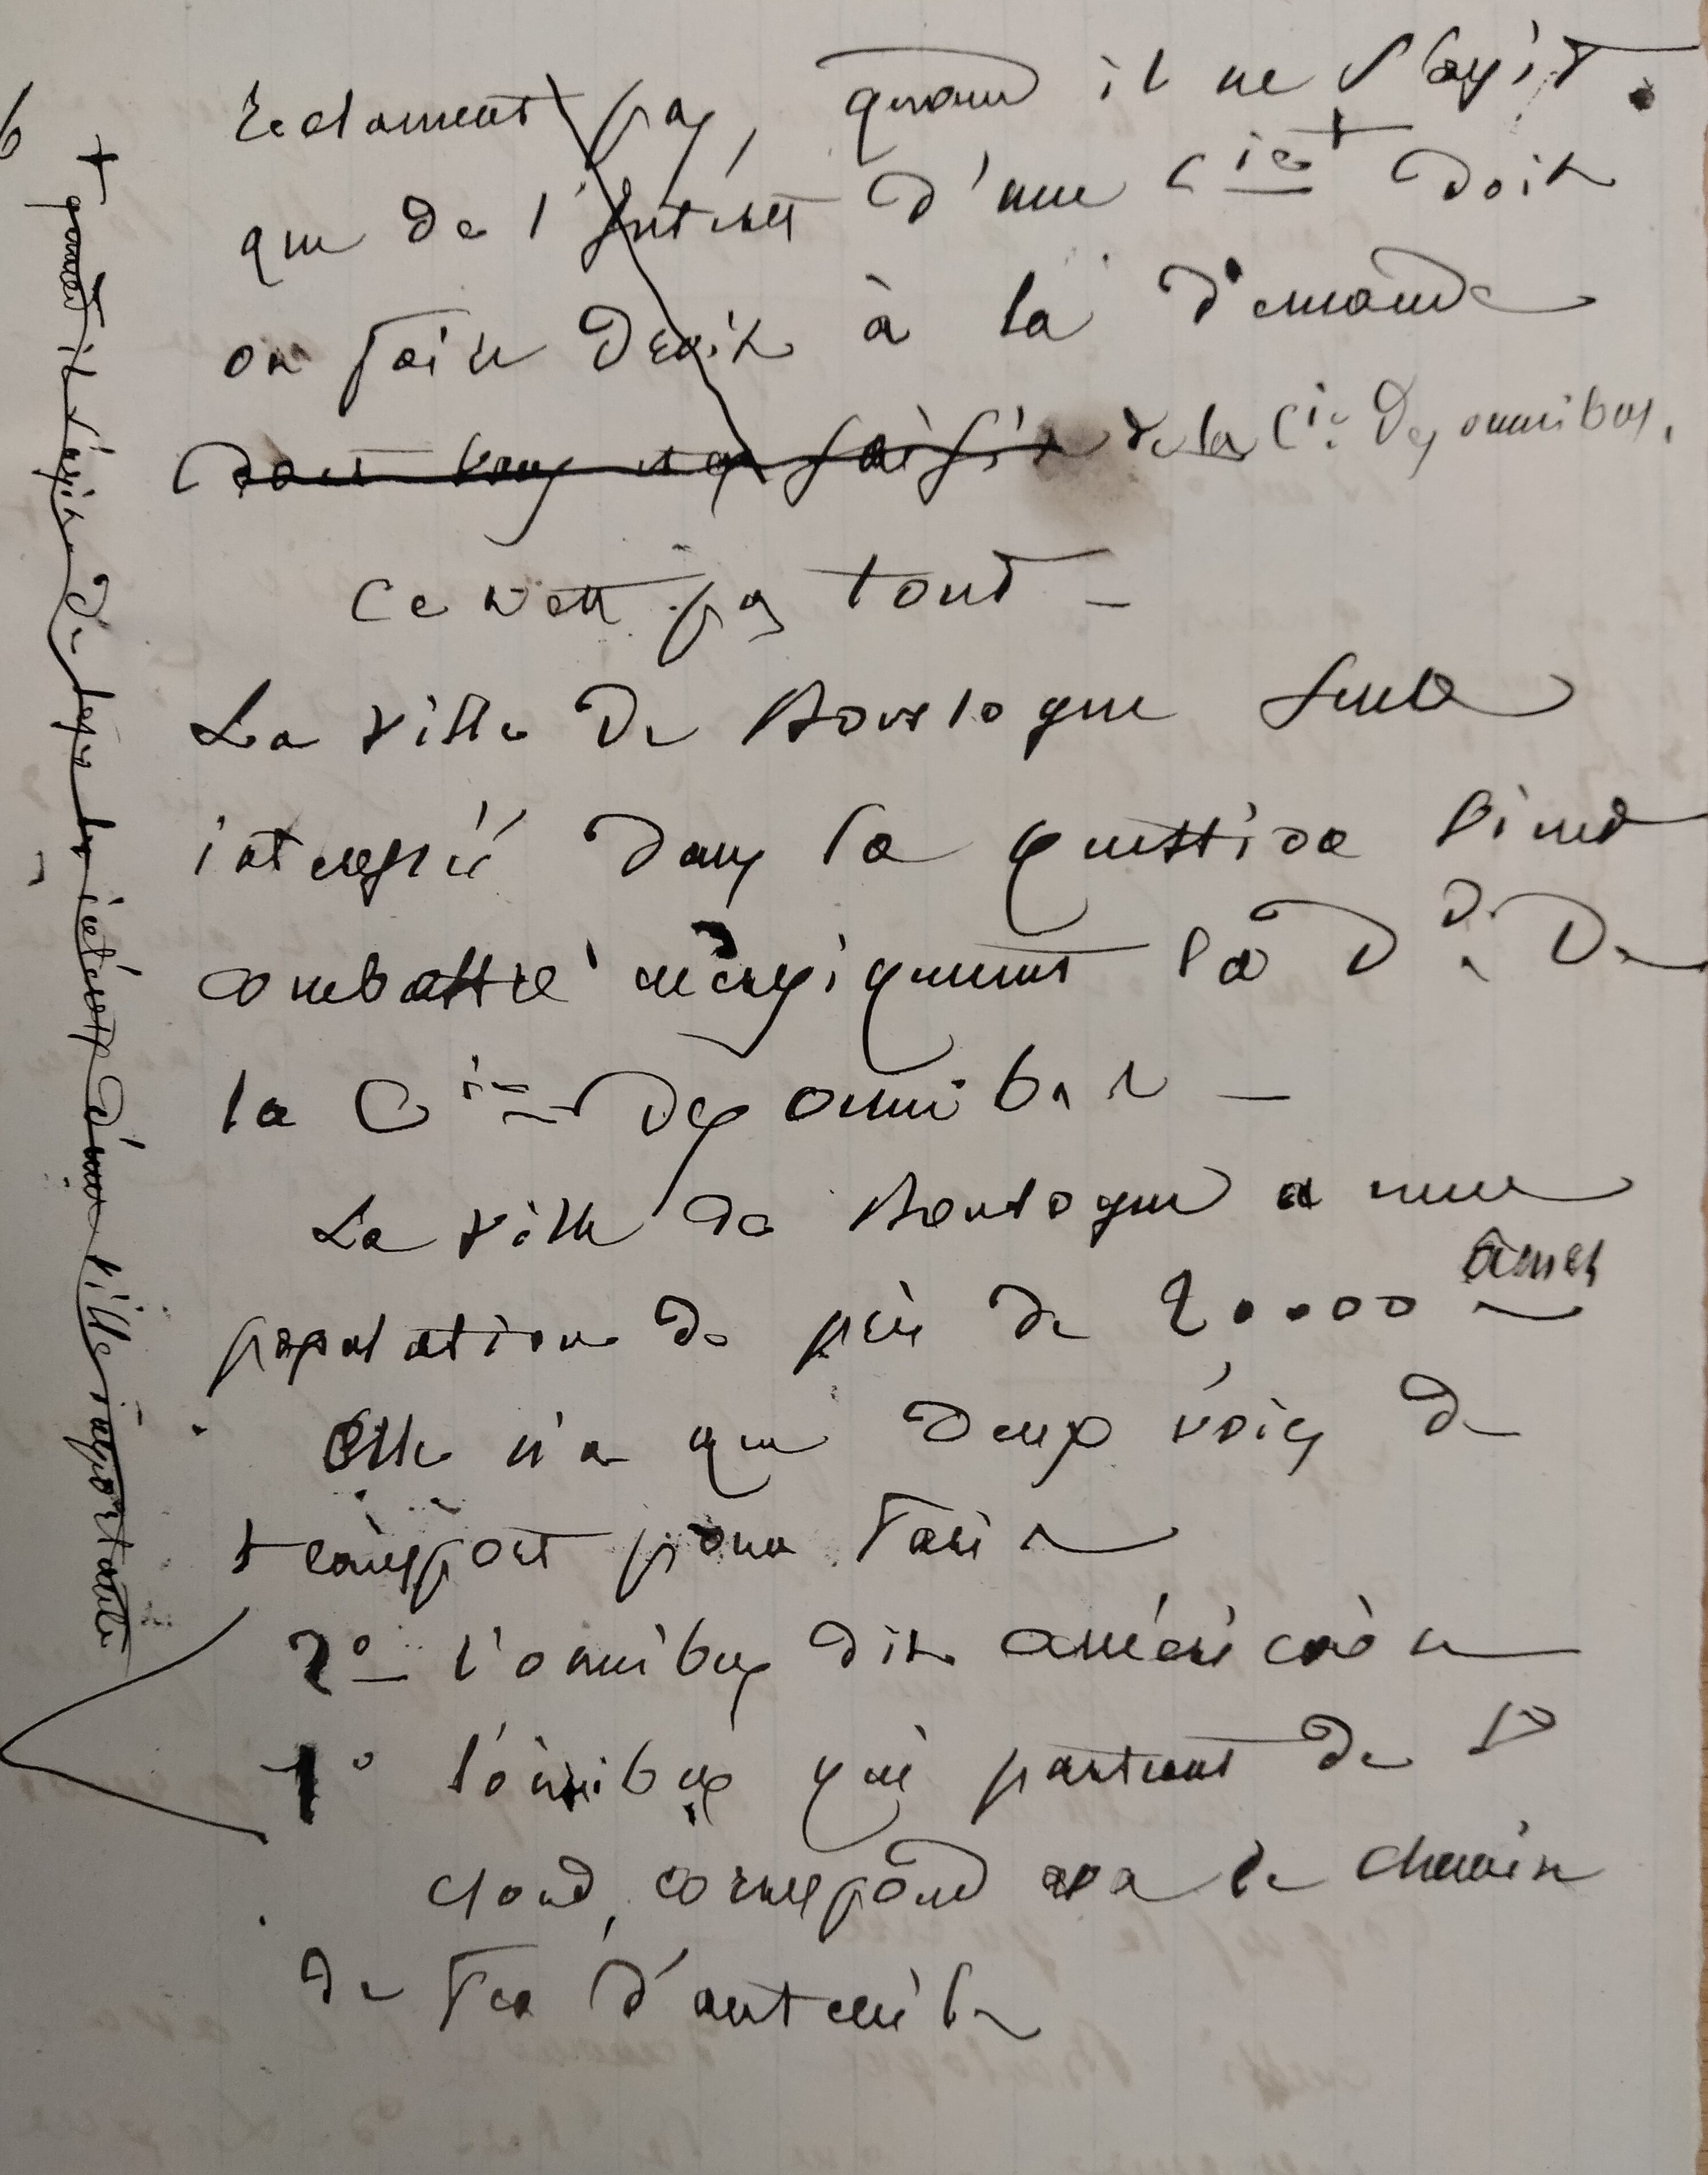 réclament pas, quand il ne s'agit
que de l'intérêt d'une Cie + doit
on faire droit à la demande
dont vous est saisie de la Cie des omnibus.
Ce n'est pas tout —
La ville de Boulogne seule
interessée dans la question vient
combattre énergiquement la De de
la Cie des omnibus —
La ville de Boulogne a une
population de près de 20.000 âmes
Elle n'a que deux voies de
transport pour Paris
2° l'omnibus dit américain
1° l'omnibus qui partent de St
Cloud, correspond avec le chemin
de fer d'auteuil
+ quand il s'agit de léser les intérêts d'une ville importante
6